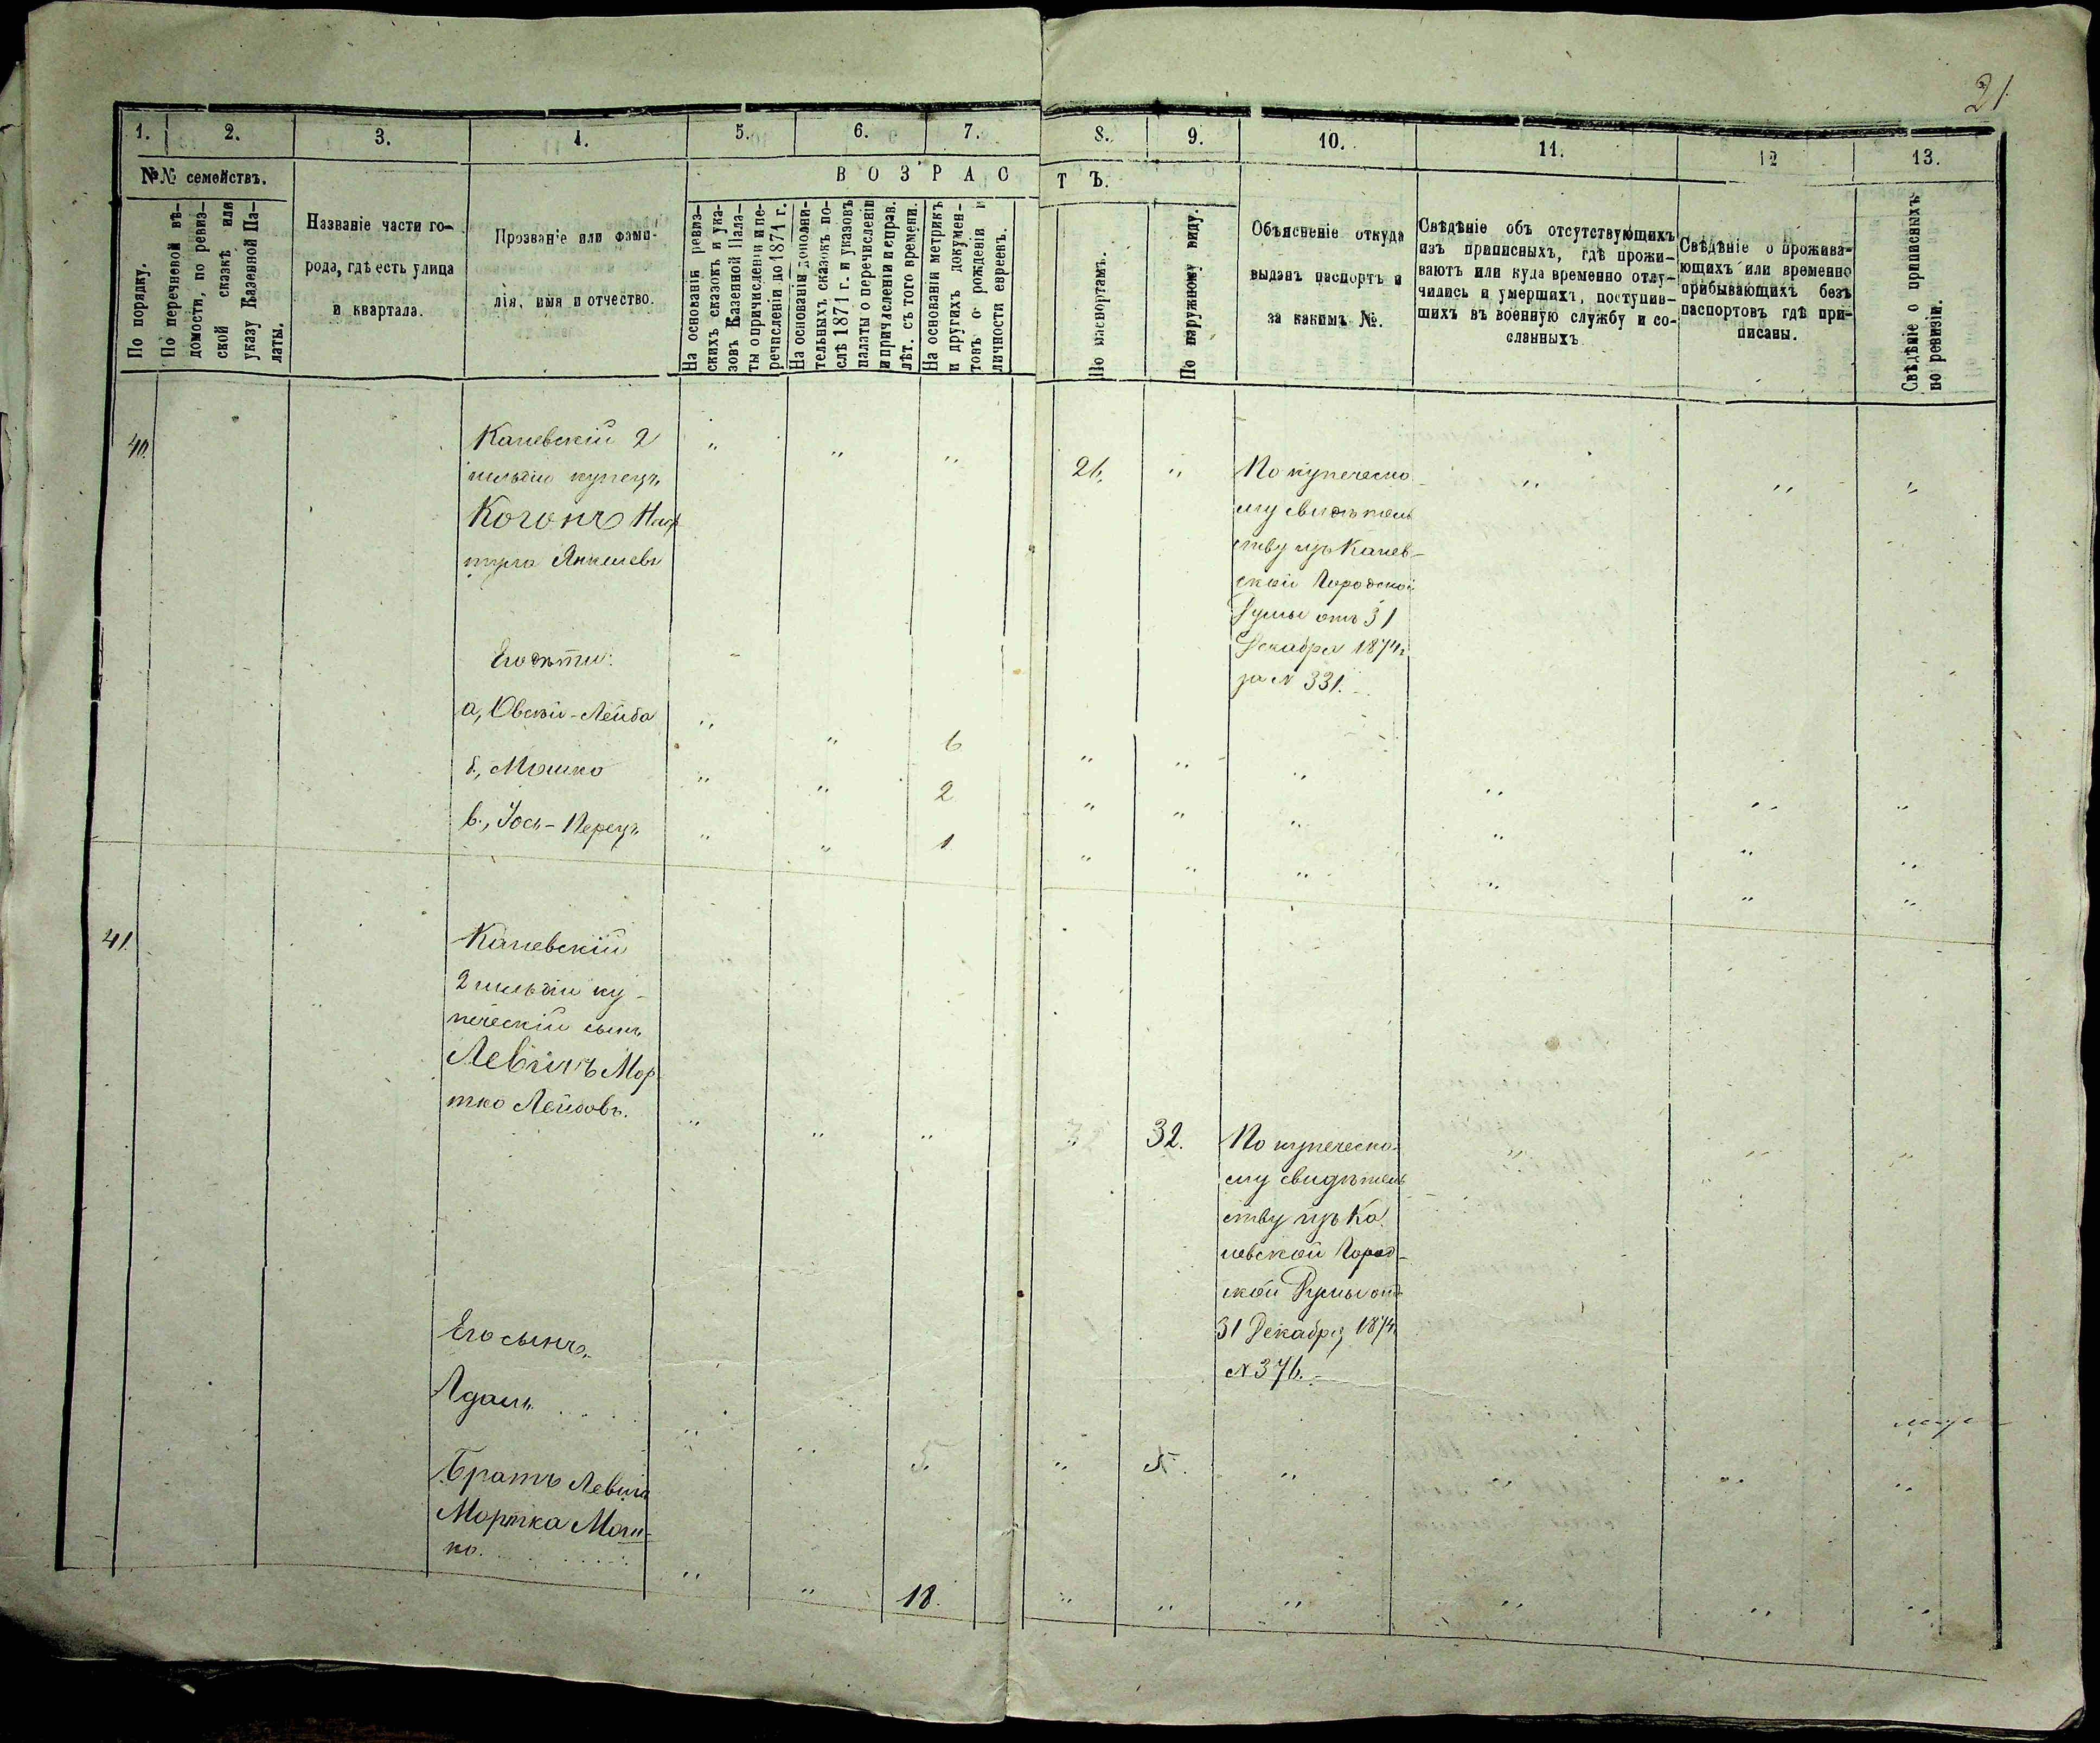 21
1. 2. 3. 4. 5. 6. 7. 8. 9. 10. 11. 12 13.
№№ семействъ.
По порядку.
По перечневой вѣ-
домости, по ревиз-
ской сказкѣ или
указу Казенной Па-
латы.
Названіе части го-
рода, гдѣ есть улица
и квартала.
Прозваніе или фами-
лія, имя и отчество.
ВОЗРАСТЪ.
На основаніи ревиз-
скихъ сказокъ и ука-
зовъ Казенной Пала-
ты о причисленіи и пе-
речисленіи до 1871 г.
На основаніи дополни-
тельныхъ сказокъ по-
слѣ 1871 г. и указовъ
палаты о перечисленіи
и причисленіи и справ.
лѣт. съ того времени.
На основаніи метрикъ
и другихъ докумен-
товъ о рожденіи и
личности евреевъ.
По паспортамъ.
По наружному виду.
Объясненіе откуда
выданъ паспортъ и
за какимъ №.
Свѣдѣніе объ отсутствующихъ
изъ приписныхъ, гдѣ прожи-
ваютъ или куда временно отлу-
чились и умершихъ, поступив-
шихъ въ военную службу и со-
сланныхъ
Свѣдѣніе о прожива-
ющихъ или временно
прибывающихъ безъ
паспортовъ гдѣ при-
писаны.
Свѣдѣніе о приписныхъ
по ревизіи.
40.
Каневскій 2
гильдіи купецъ
Когонъ
Янкелевъ
" " " 26. " " " "
По купеческо-
му свидѣтель
ству изъ Канев-
ской Городской
Думы отъ 31
Декабря 1874 г
за № 331.
Его дѣти:
а, Овсѣй-Лейба " " 6 " " " " " "
б., Мошко " " 2 " " " " " "
в., Іось-Перецъ " " 1 " " " " " "
41.
Каневскій
2 гильдіи ку-
печескій сынъ
Левинъ Мор
тко Лейбовъ.
" " " 32. " " "
По купеческо-
му свидѣтель
ству изъ Ка
невской Город-
ской Думы отъ
31 Декабря 1874
№ 376.
Его сынъ
Адамъ " " 5 " 5. " " " "
Братъ Левина
Мортка Мош-
ко. " " 18. " " " " " "